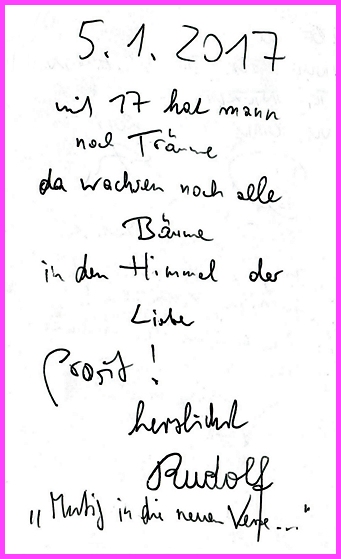 5.1.2017
mit 17 hat mann
noch Träume
da wachsen noch alle
Bäume
in den Himmel der
Liebe
Prosit!
herzlichst
Rudolf
„Mutig in die neuen Verse..."